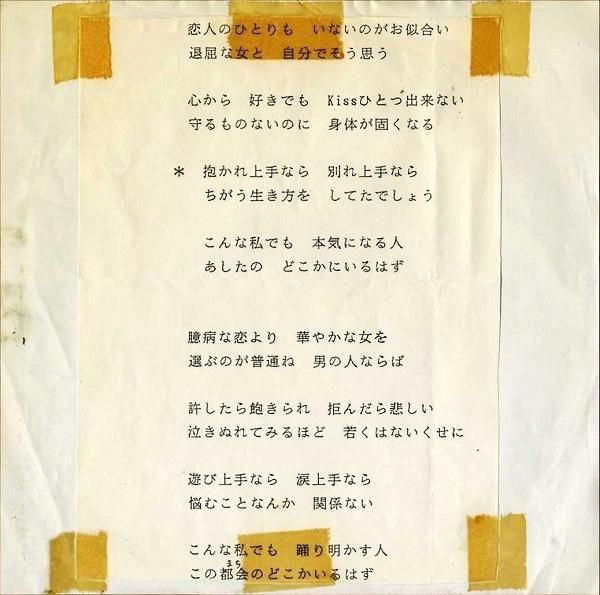 恋人のひとりも　いないのがお似合い
退屈な女と　自分でそう思う
心から　好きでも　Kissひとつ出来ない
守るものないのに　身体が固くなる
＊　抱かれ上手なら　別れ上手なら
ちがう生き方を　してたでしょう
こんな私でも　本気になる人
あしたの　どこかにいるはず
臆病な恋より　華やかな女を
選ぶのが普通ね　男の人ならば
許したら飽きられ　拒んだら悲しい
泣きぬれてみるほど　若くはないくせに
遊び上手なら　涙上手なら
悩むことなんか　関係ない
こんな私でも　踊り明かす人
まち
この都会のどこかいるはず